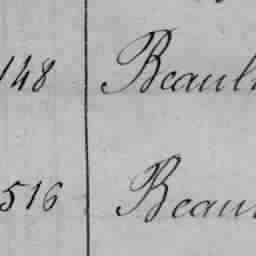 148 Beaul
516 Beau